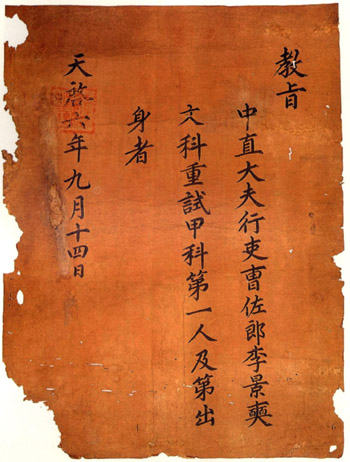 教旨
中直大夫行吏曺佐郎李景奭
文科重試甲科第一人及第出
身者
天啓六年九月十四日